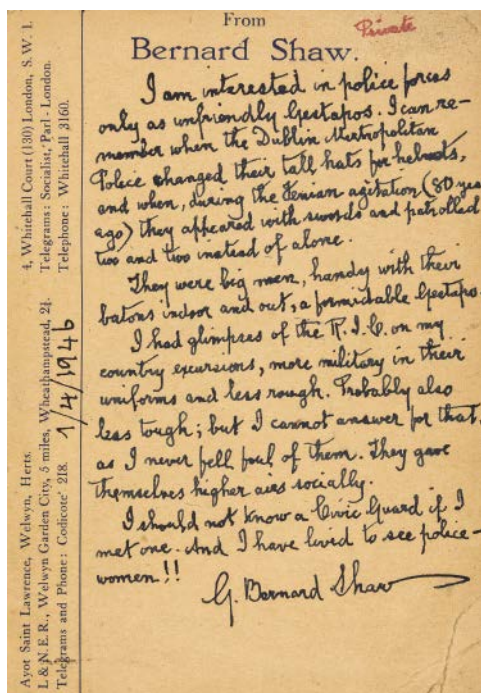 From
Private
Bernard Shaw.
4, Whitehall Court (130) London, S. W. 1.
Telegrams: Socialist, Parl - London.
Telephone: Whitehall 3160.
Ayot Saint Lawrence, Welwyn, Herts.
L & N.E.R., Welwyn Garden City, 5 miles, Wheathampstead, 2¼.
Telegrams and Phone: Codicote 218.
1/4/1946
I am interested in police forces
only as unfriendly Gestapos. I can re-
member when the Dublin Metropolitan
Police changed their tall hats for helmets,
and when, during the Fenian agitation (80 yea
ago) they appeared with swords and patrolled
two and two instead of alone.
They were big men, handy with their
batons indoor and out, a formidable Gestapo.
I had glimpses of the R.I.C. on my
country excursions, more military in their
uniforms and less rough. Probably also
less tough; but I cannot answer for that,
as I never fell foul of them. They gave
themselves higher airs socially.
I should not know a Civic Guard if I
met one. And I have lived to see police-
women!!
G. Bernard Shaw